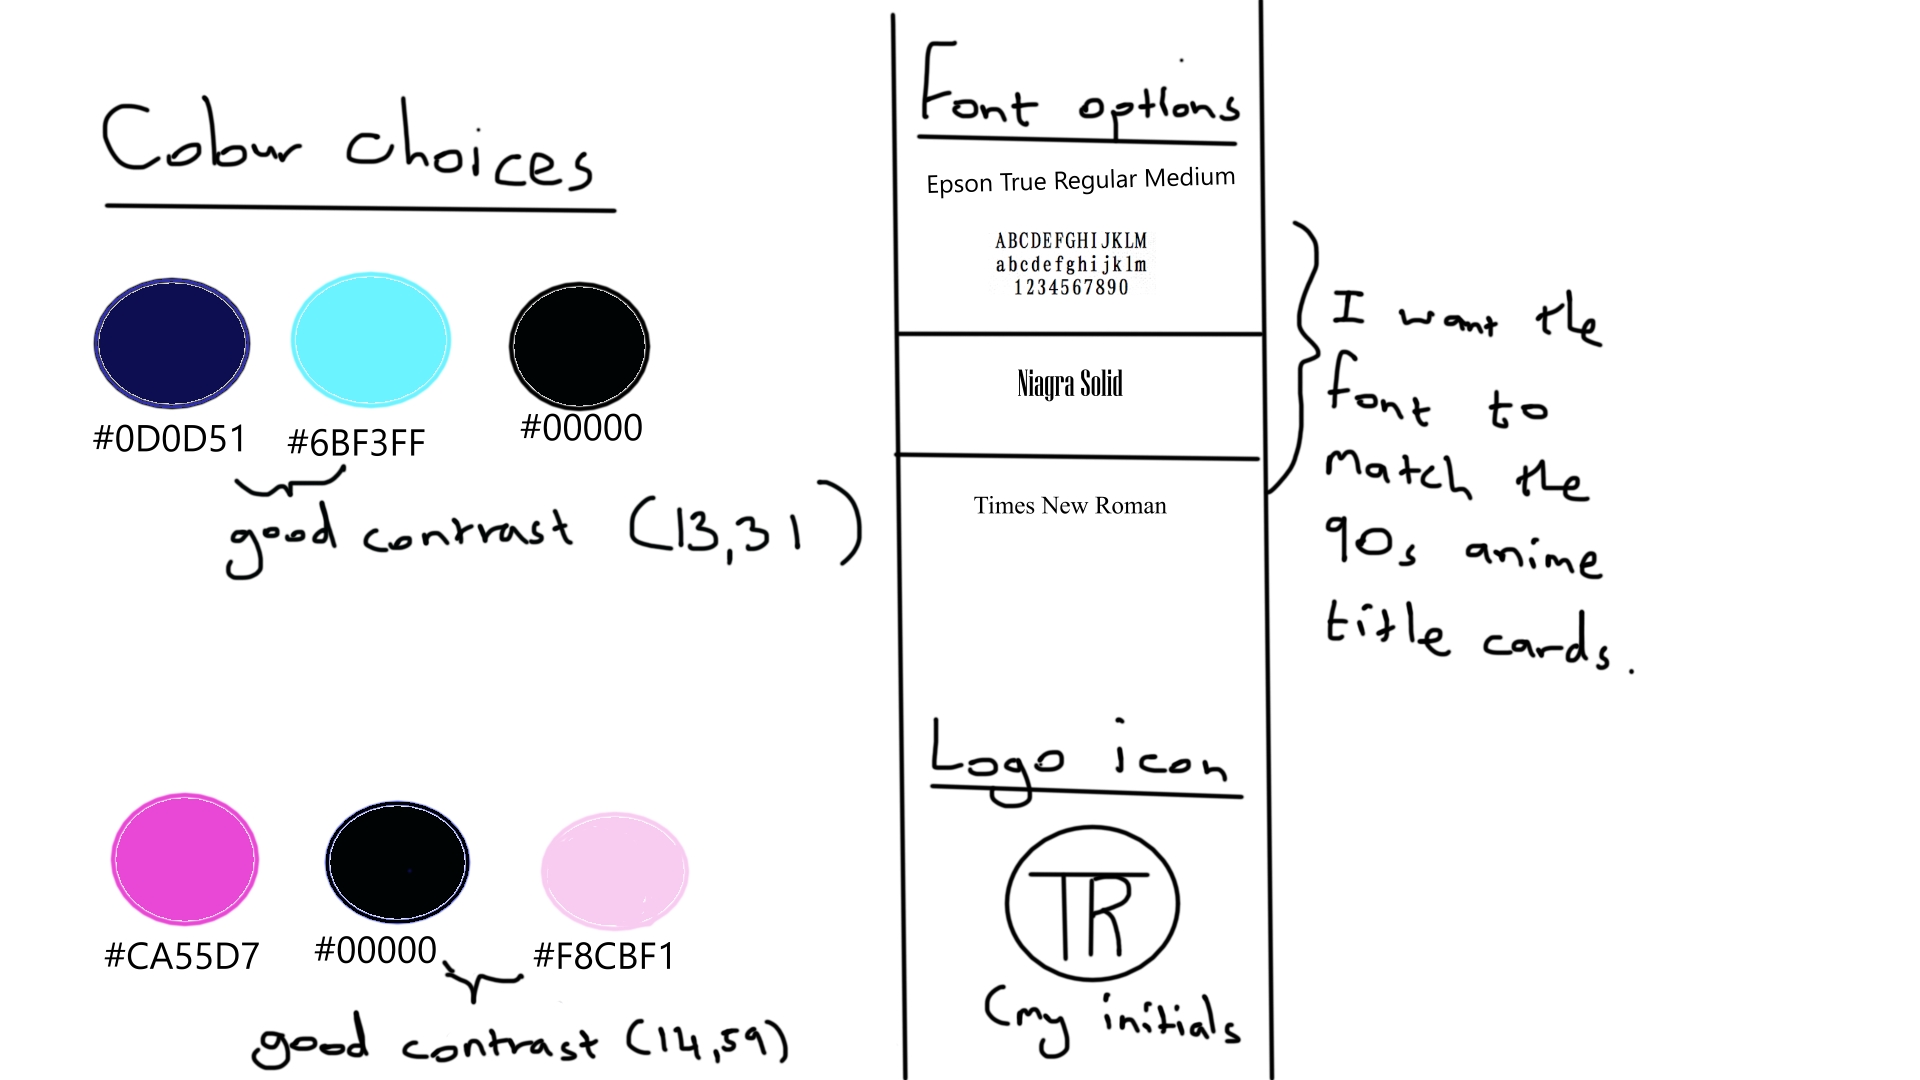 Colour choices
#0D0D51 #6BF3FF #00000
good contrast (13,31)
#CA55D7 #00000 #F8CBF1
good contrast (14,59)
Font options
Epson True Regular Medium
ABCDEFGHIJKLM
abcdefghijklm
1234567890
Niagra Solid
Times New Roman
I want the
font to
match the
90s anime
title cards.
Logo icon
TR
(my initials